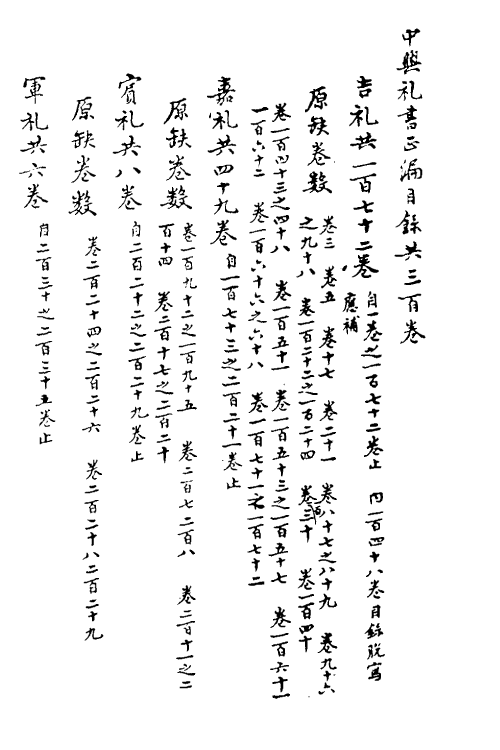 中興礼書正漏目錄共三百卷
吉礼共一百七十二卷 自一卷之一百七十二卷止 內一百四十八卷目錄脫寫
應補
原缺卷数 卷三 卷五 卷十七 卷二十一 卷八十七之八十九 卷九十六
之九十八 卷一百二十二之一百二十四 卷一百三十 卷一百四十
卷一百四十三之四十八 卷一百五十一 卷一百五十三之一百五十七 卷一百六十一
一百六十二 卷一百六十六之六十八 卷一百七十一 一百七十二
嘉礼共四十九卷 自一百七十三之二百二十一卷止
原缺卷数 卷一百九十二之一百九十五 卷二百七二百八 卷二百十一之二
百十四 卷二百十七之二百二十
賓礼共八卷 自二百二十二之二百二十九卷止
原缺卷数 卷二百二十四之二百二十六 卷二百二十八二百二十九
軍礼共六卷 自二百三十之二百三十五卷止